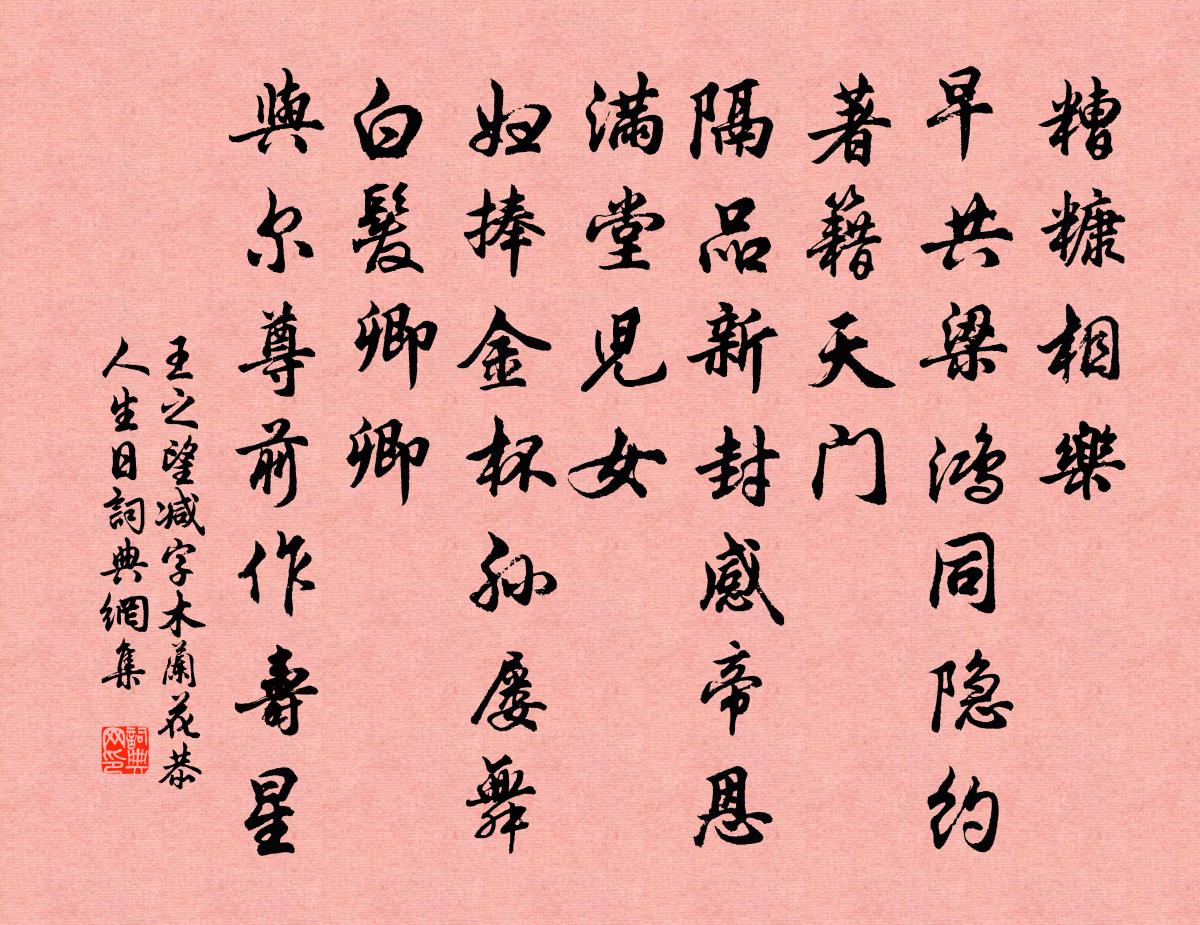 糟糠相樂
早共梁鸿同隐约
著籍天门
隔品新封感帝恩
满堂児女
妇捧金杯孙屡舞
白髮卿卿
與尔尊前作壽星
王之望减字木蘭花恭
人生日詞典網集
詞典网印